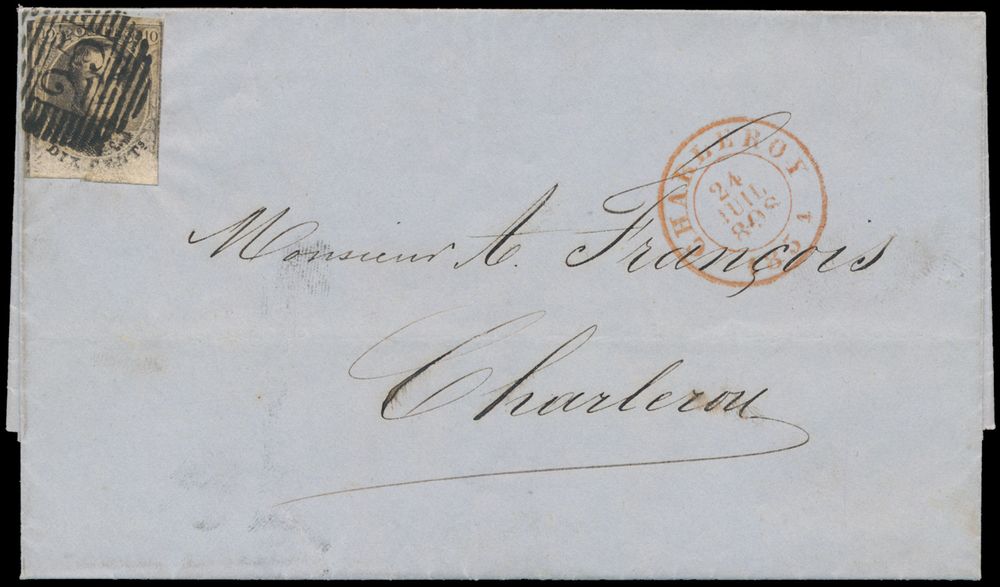 10 POSTES 10
DIX CENTS
CHARLEROY
24
JUIL
8-9S
1851
Monsieur A. François
Charleroy